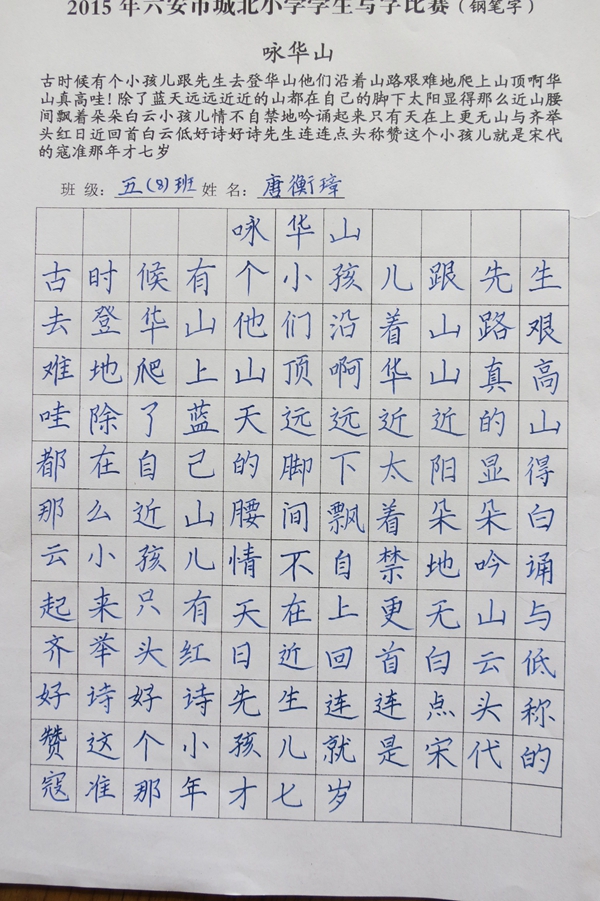 2015年六安市城北小学学生写字比赛（钢笔字）
咏华山
古时候有个小孩儿跟先生去登华山他们沿着山路艰难地爬上山顶啊华
山真高哇！除了蓝天远远近近的山都在自己的脚下太阳显得那么近山腰
间飘着朵朵白云小孩儿情不自禁地吟诵起来只有天在上更无山与齐举
头红日近回首白云低好诗好诗先生连连点头称赞这个小孩儿就是宋代
的寇准那年才七岁
班级：五(8)班 姓名：唐衡璋
咏华山
古时候有个小孩儿跟先生
去登华山他们沿着山路艰
难地爬上山顶啊华山真高
哇除了蓝天远远近近的山
都在自己的脚下太阳显得
那么近山腰间飘着朵朵白
云小孩儿情不自禁地吟诵
起来只有天在上更无山与
齐举头红日近回首白云低
好诗好诗先生连连点头称
赞这个小孩儿就是宋代的
寇准那年才七岁